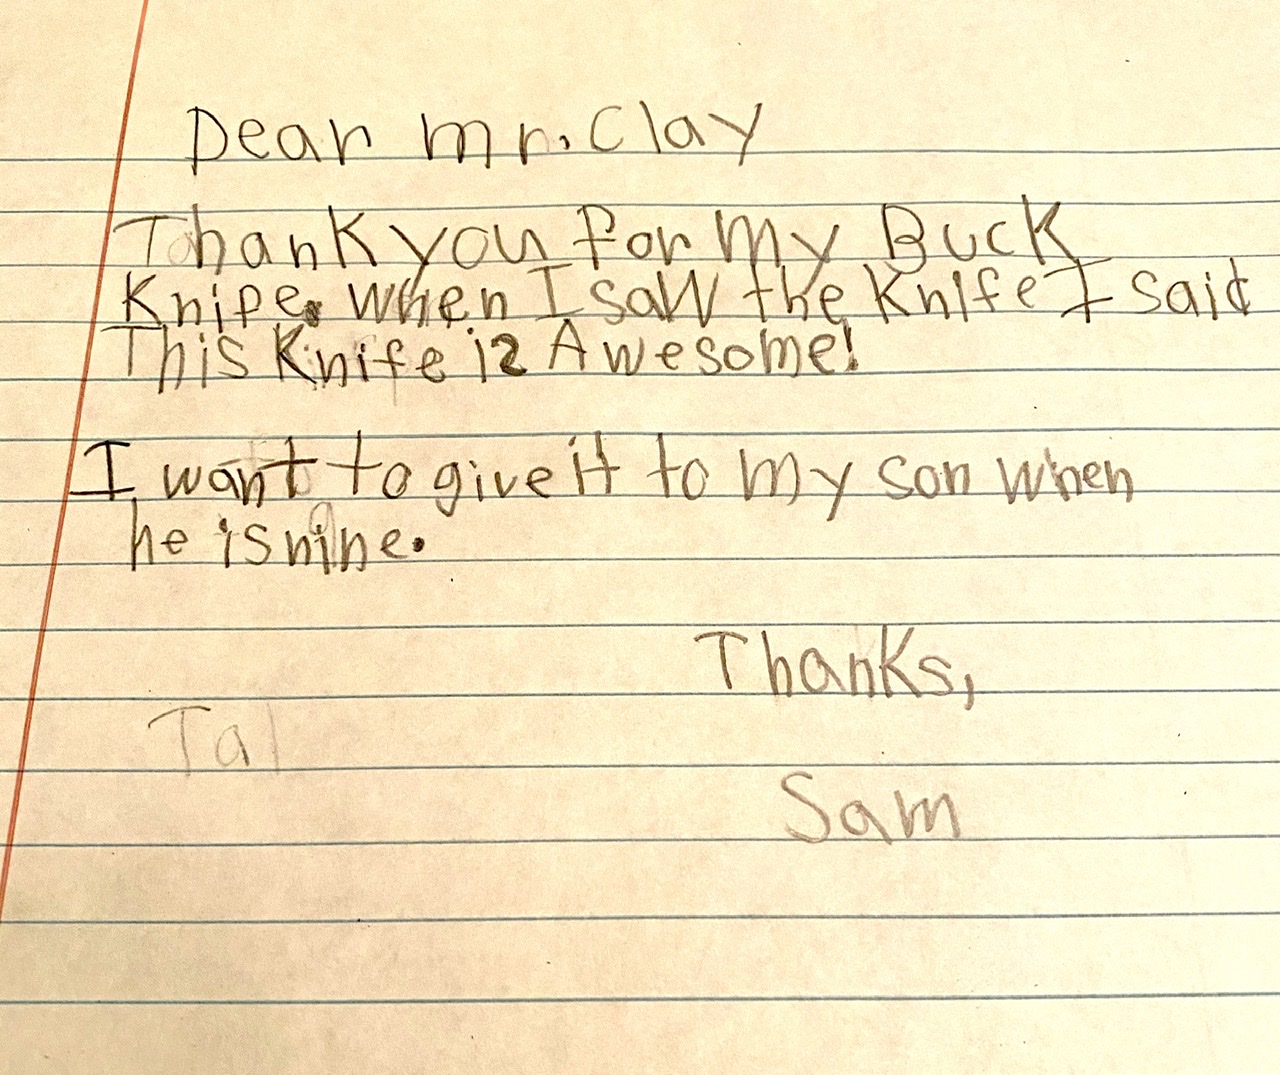 Dear mr. Clay
Thank you for my Buck
Knife. When I saw the Knife I said
This Knife is Awesome!
I want to give it to my son when
he is nine.
Thanks,
Tal
Sam